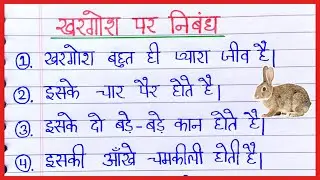 खरगोश पर निबंध
①. खरगोश बहुत ही प्यारा जीव है।
②. इसके चार पैर होते है।
③. इसके दो बड़े-बड़े कान होते है।
④. इसकी आँखे चमकीली होती है।